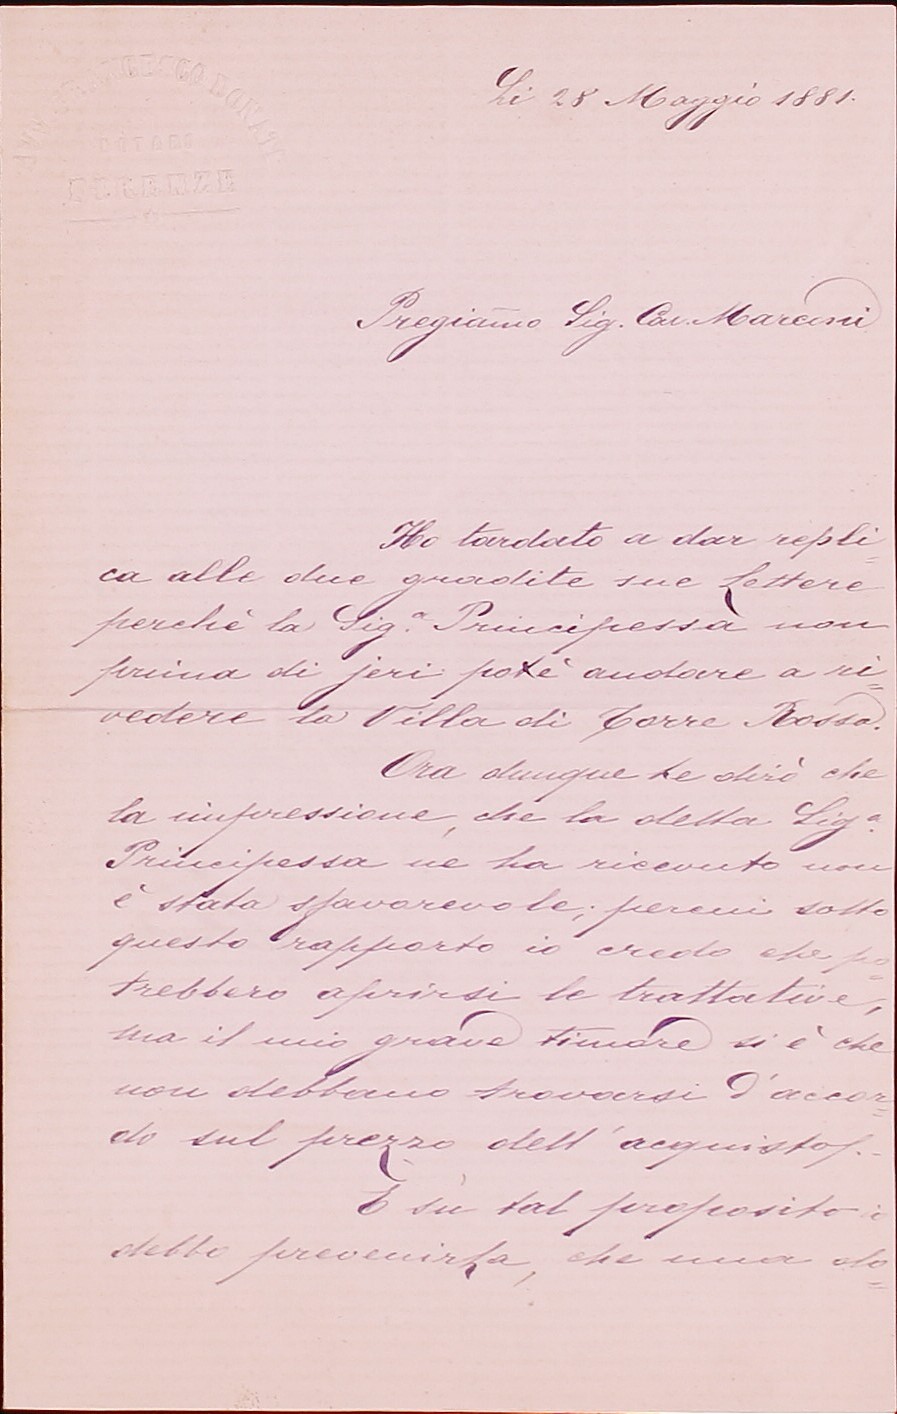 AVV. FRANCESCO DONATI
NOTARO
FIRENZE
Li 28 Maggio 1881.
Pregiamo Sig. Cav. Marcini
Ho tardato a dar repli=
ca alle due gradite sue Lettere
perchè la Sig.a Principessa non
prima di jeri potè andare a ri=
vedere la Villa di Torre Rossa.
Ora dunque Le dirò che
la impressione, che la detta Sig.a
Principessa ne ha ricevuto non
è stata sfavorevole; percui sotto
questo rapporto io credo che po=
trebbero aprirsi le trattative,
ma il mio grave timore si è che
non debbano trovarsi d'accor=
do sul prezzo dell'acquisto.
E sù tal proposito io
debbo prevenirLa, che una do=